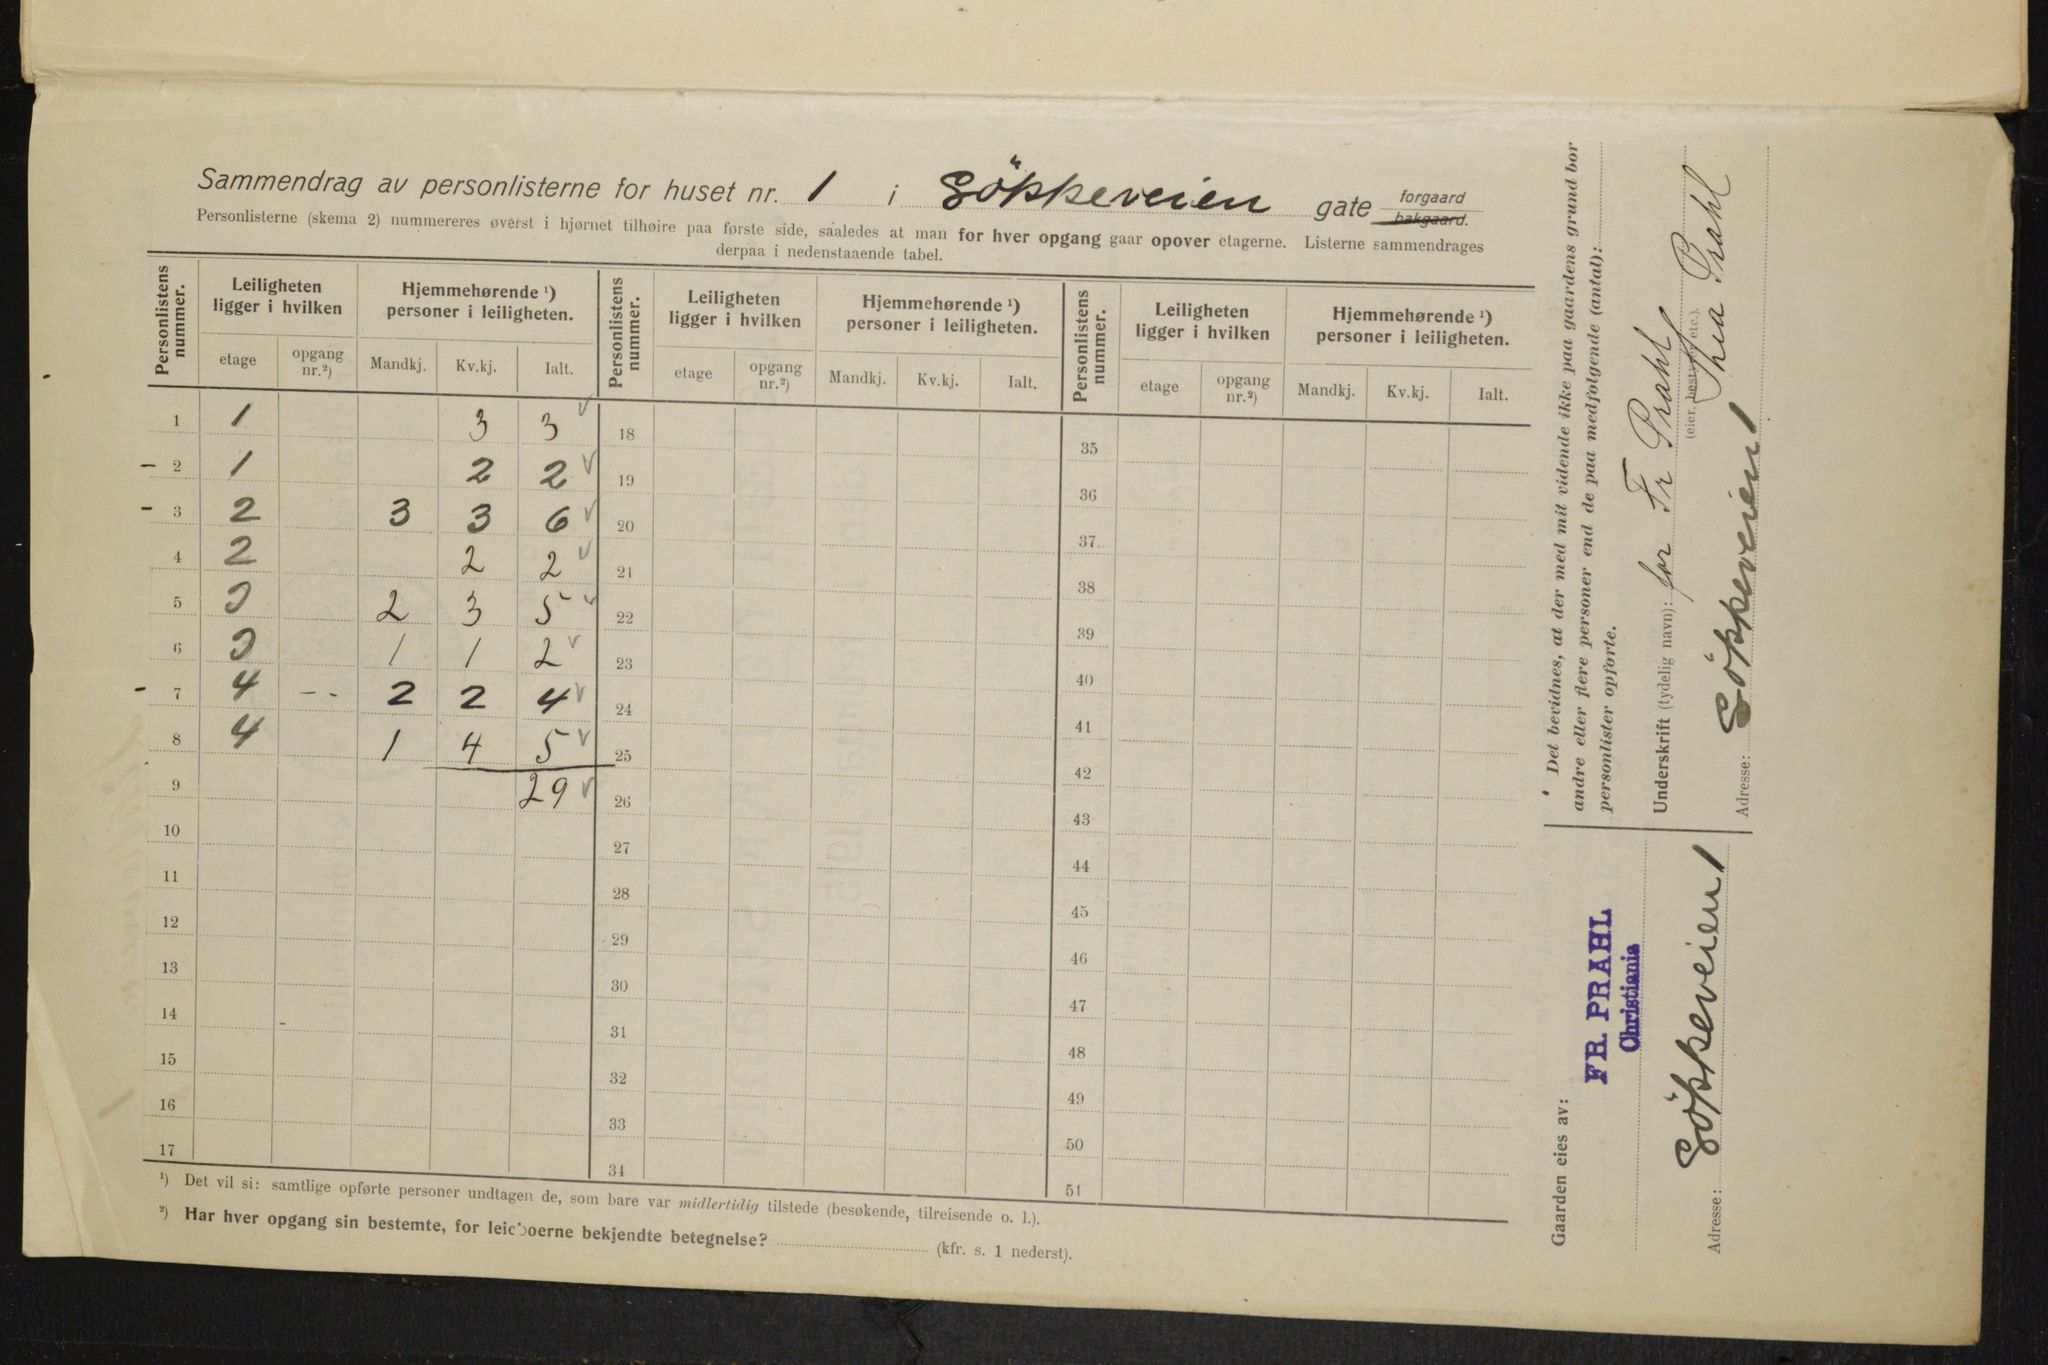 Sammendrag av personlisterne for huset nr. 1 i Gökkeveien gate forgaard bakgaard.
Personlisterne (skema 2) nummereres øverst i hjørnet tilhøire paa første side, saaledes at man for hver opgang gaar opover etagerne. Listerne sammendrages
derpaa i nedenstaaende tabel.
Personlistens nummer. Leiligheten ligger i hvilken Hjemmehørende ¹) personer i leiligheten. Personlistens nummer. Leiligheten ligger i hvilken Hjemmehørende ¹) personer i leiligheten. Personlistens nummer. Leiligheten ligger i hvilken Hjemmehørende ¹) personer i leiligheten.
etage opgang nr.²) Mandkj. Kv.kj. Ialt. etage opgang nr.²) Mandkj. Kv.kj. Ialt. etage opgang nr.²) Mandkj. Kv.kj. Ialt.
1 1 3 3 18 35
- 2 1 2 2 19 36
- 3 2 3 3 6 20 37
4 2 2 2 21 38
5 3 2 3 5 22 39
6 3 1 1 2 23 40
- 7 4 - - 2 2 4 24 41
8 4 1 4 5 25 42
9 29 26 43
10 27 44
11 28 45
12 29 46
13 30 47
14 31 48
15 32 49
16 33 50
17 34 51
¹) Det vil si: samtlige opførte personer undtagen de, som bare var midlertidig tilstede (besøkende, tilreisende o. l.).
²) Har hver opgang sin bestemte, for leieboerne bekjendte betegnelse? (kfr. s. 1 nederst).
Det bevidnes, at der med mit vidende ikke paa gaardens grund bor
andre eller flere personer end de paa medfølgende (antal):
personlister opførte.
Underskrift (tydelig navn): for Fr Prahl
(eier, bestyrer etc.).
Thea Prahl
Adresse: Gökkeveien 1
Gaarden eies av:
FR. PRAHL
Christiania
Adresse: Gökkeveien 1